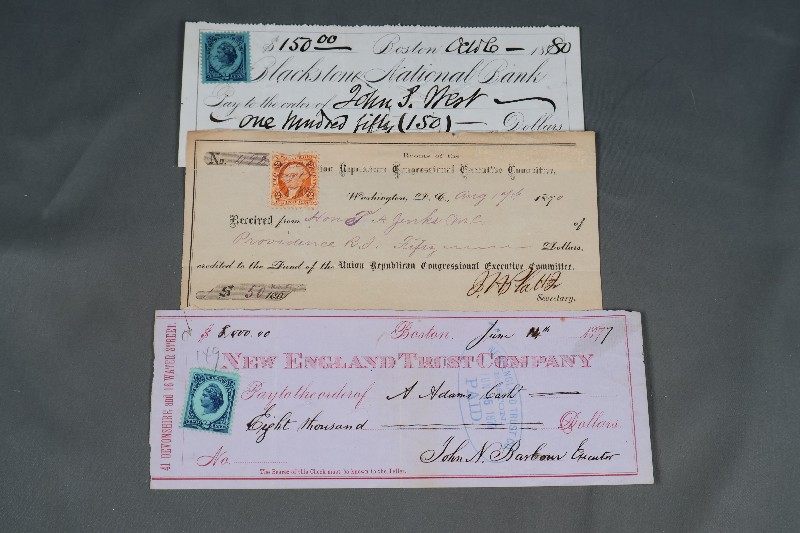 $150.00 Boston Oct 6 — 1880
Blackstone National Bank
Pay to the order of John P. West
One hundred fifty (150) — Dollars
No.
Rooms of the
Union Republican Congressional Executive Committee.
Washington, D. C. Aug 17th 1870
Received from Hon T. A. Jenks M.C. of
Providence R.I. Fifty Dollars,
credited to the Fund of the Union Republican Congressional Executive Committee.
$ 50 /100
Secretary.
41 DEVONSHIRE and 16 WATER STREET.
$ 8,000.00 Boston, June 14th 1877
149
NEW ENGLAND TRUST COMPANY
Pay to the order of A Adams Cash
Eight thousand Dollars.
PAID
No. John N. Barbour Executor
The Bearer of this Check must be known to the Teller.